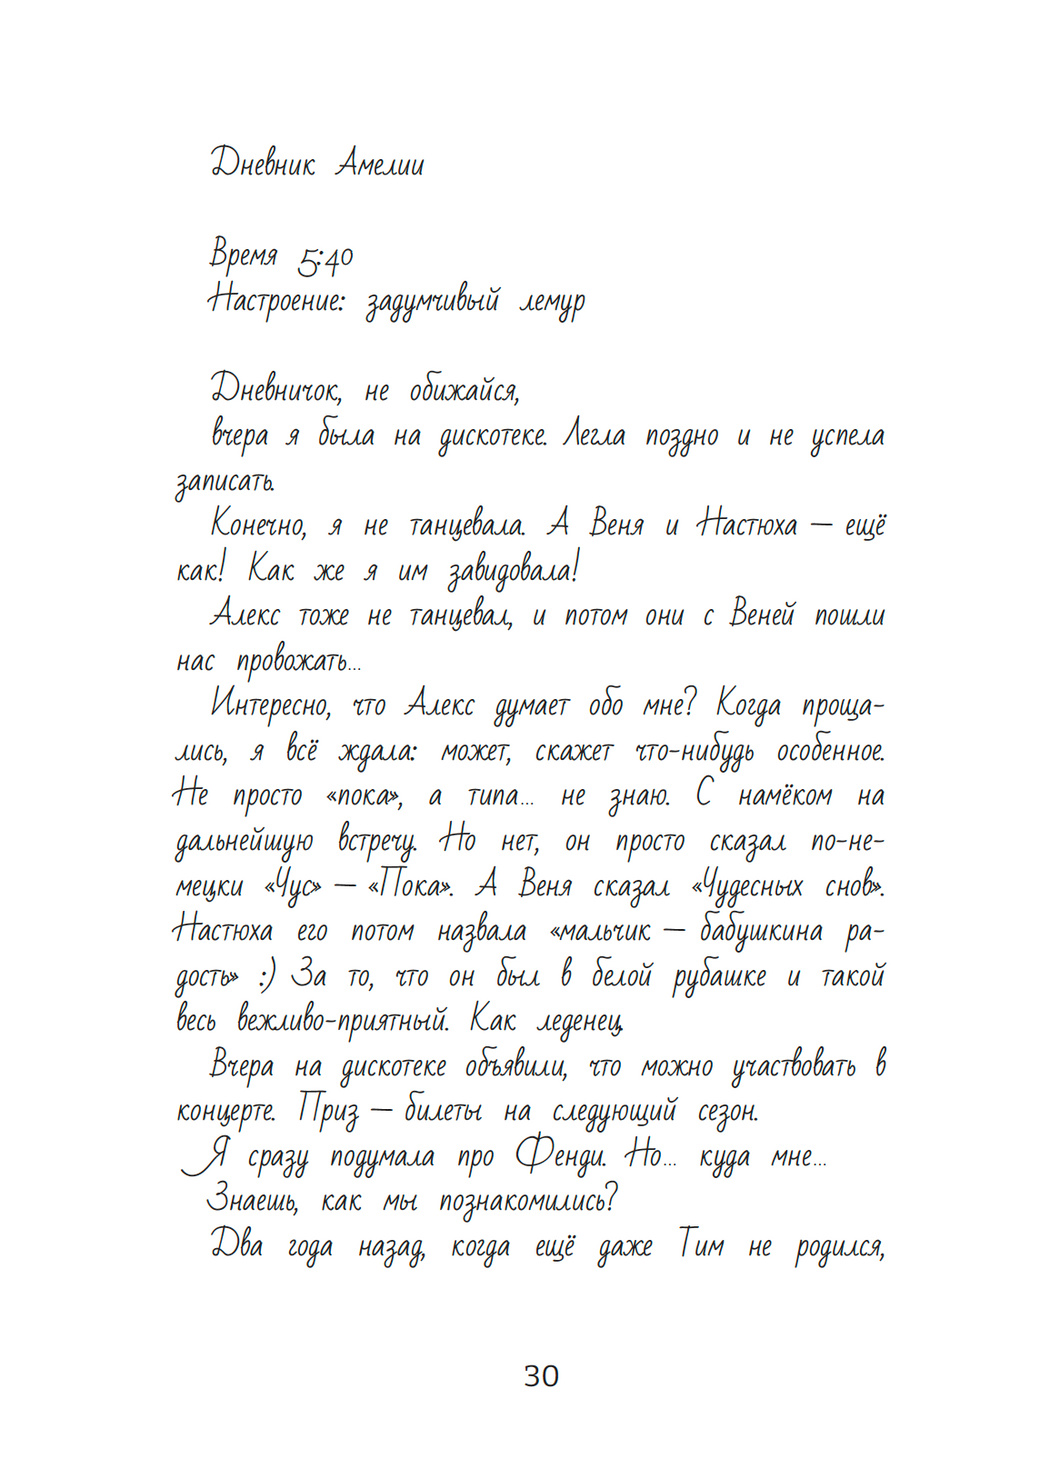 Дневник Амелии
Время 5:40
Настроение: задумчивый лемур
Дневничок, не обижайся,
вчера я была на дискотеке. Легла поздно и не успела
записать.
Конечно, я не танцевала. А Веня и Настюха — ещё
как! Как же я им завидовала!
Алекс тоже не танцевал, и потом они с Веней пошли
нас провожать...
Интересно, что Алекс думает обо мне? Когда проща-
лись, я всё ждала: может, скажет что-нибудь особенное.
Не просто «пока», а типа... не знаю. С намёком на
дальнейшую встречу. Но нет, он просто сказал по-не-
мецки «Чус» — «Пока». А Веня сказал «Чудесных снов».
Настюха его потом назвала «мальчик — бабушкина ра-
дость» :) За то, что он был в белой рубашке и такой
весь вежливо-приятный. Как леденец.
Вчера на дискотеке объявили, что можно участвовать в
концерте. Приз — билеты на следующий сезон.
Я сразу подумала про Фенди. Но... куда мне...
Знаешь, как мы познакомились?
Два года назад, когда ещё даже Тим не родился,
30